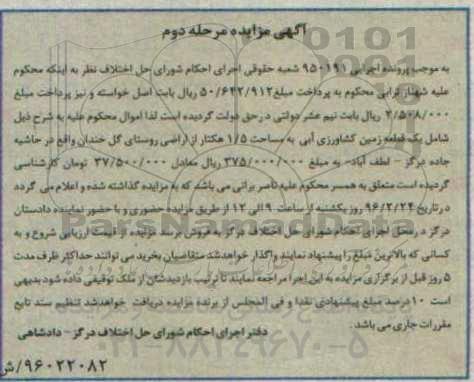 آگهی مزایده مرحله دوم
به موجب پرونده اجرایی ۹۵۰۱۹۱ شعبه حقوقی اجرای احکام شورای حل اختلاف نظر به اینکه محکوم
علیه شهناز ترابی محکوم به پرداخت مبلغ ۵۰/۶۴۲/۹۱۲ ریال بابت اصل خواسته و نیز پرداخت مبلغ
۲/۵۰۸/۰۰۰ ریال بابت نیم عشر دولتی در حق دولت گردیده است لذا اموال محکوم علیه به شرح ذیل
شامل یک قطعه زمین کشاورزی آبی به مساحت ۱/۵ هکتار از اراضی روستای گل خندان واقع در حاشیه
جاده درگز - لطف آباد- به مبلغ ۳۷۵/۰۰۰/۰۰۰ ریال معادل ۳۷/۵۰۰/۰۰۰ تومان کارشناسی
گردیده است متعلق به همسر محکوم علیه ناصر براتی می باشد که به مزایده گذاشته شده و اعلام می گردد
در تاریخ ۹۶/۲/۲۴ روز یکشنبه از ساعت ۹ الی ۱۲ از طریق مزایده حضوری و با حضور نماینده دادستان
درگز در محل اجرای احکام شورای حل اختلاف درگز به فروش برسد مزایده از قیمت ارزیابی شروع و به
کسانی که بالاترین مبلغ را پیشنهاد نمایند واگذار خواهد شد متقاضیان بخرید می توانند حداکثر ظرف مدت
۵ روز قبل از برگزاری مزایده به این اجرا مراجعه نمایند تا ترتیب بازدیدشان از ملک توقیفی داده شود بدیهی
است ۱۰ درصد مبلغ پیشنهادی نقدا و فی المجلس از برنده مزایده دریافت خواهد شد تنظیم سند تابع
مقررات جاری می باشد.
دفتر اجرای احکام شورای حل اختلاف درگز - دادشاهی
۹۶۰۲۲۰۸۲/ش
ParsNamadData
۰۲۱-۸۸۳۴۹۶۷۰-۵